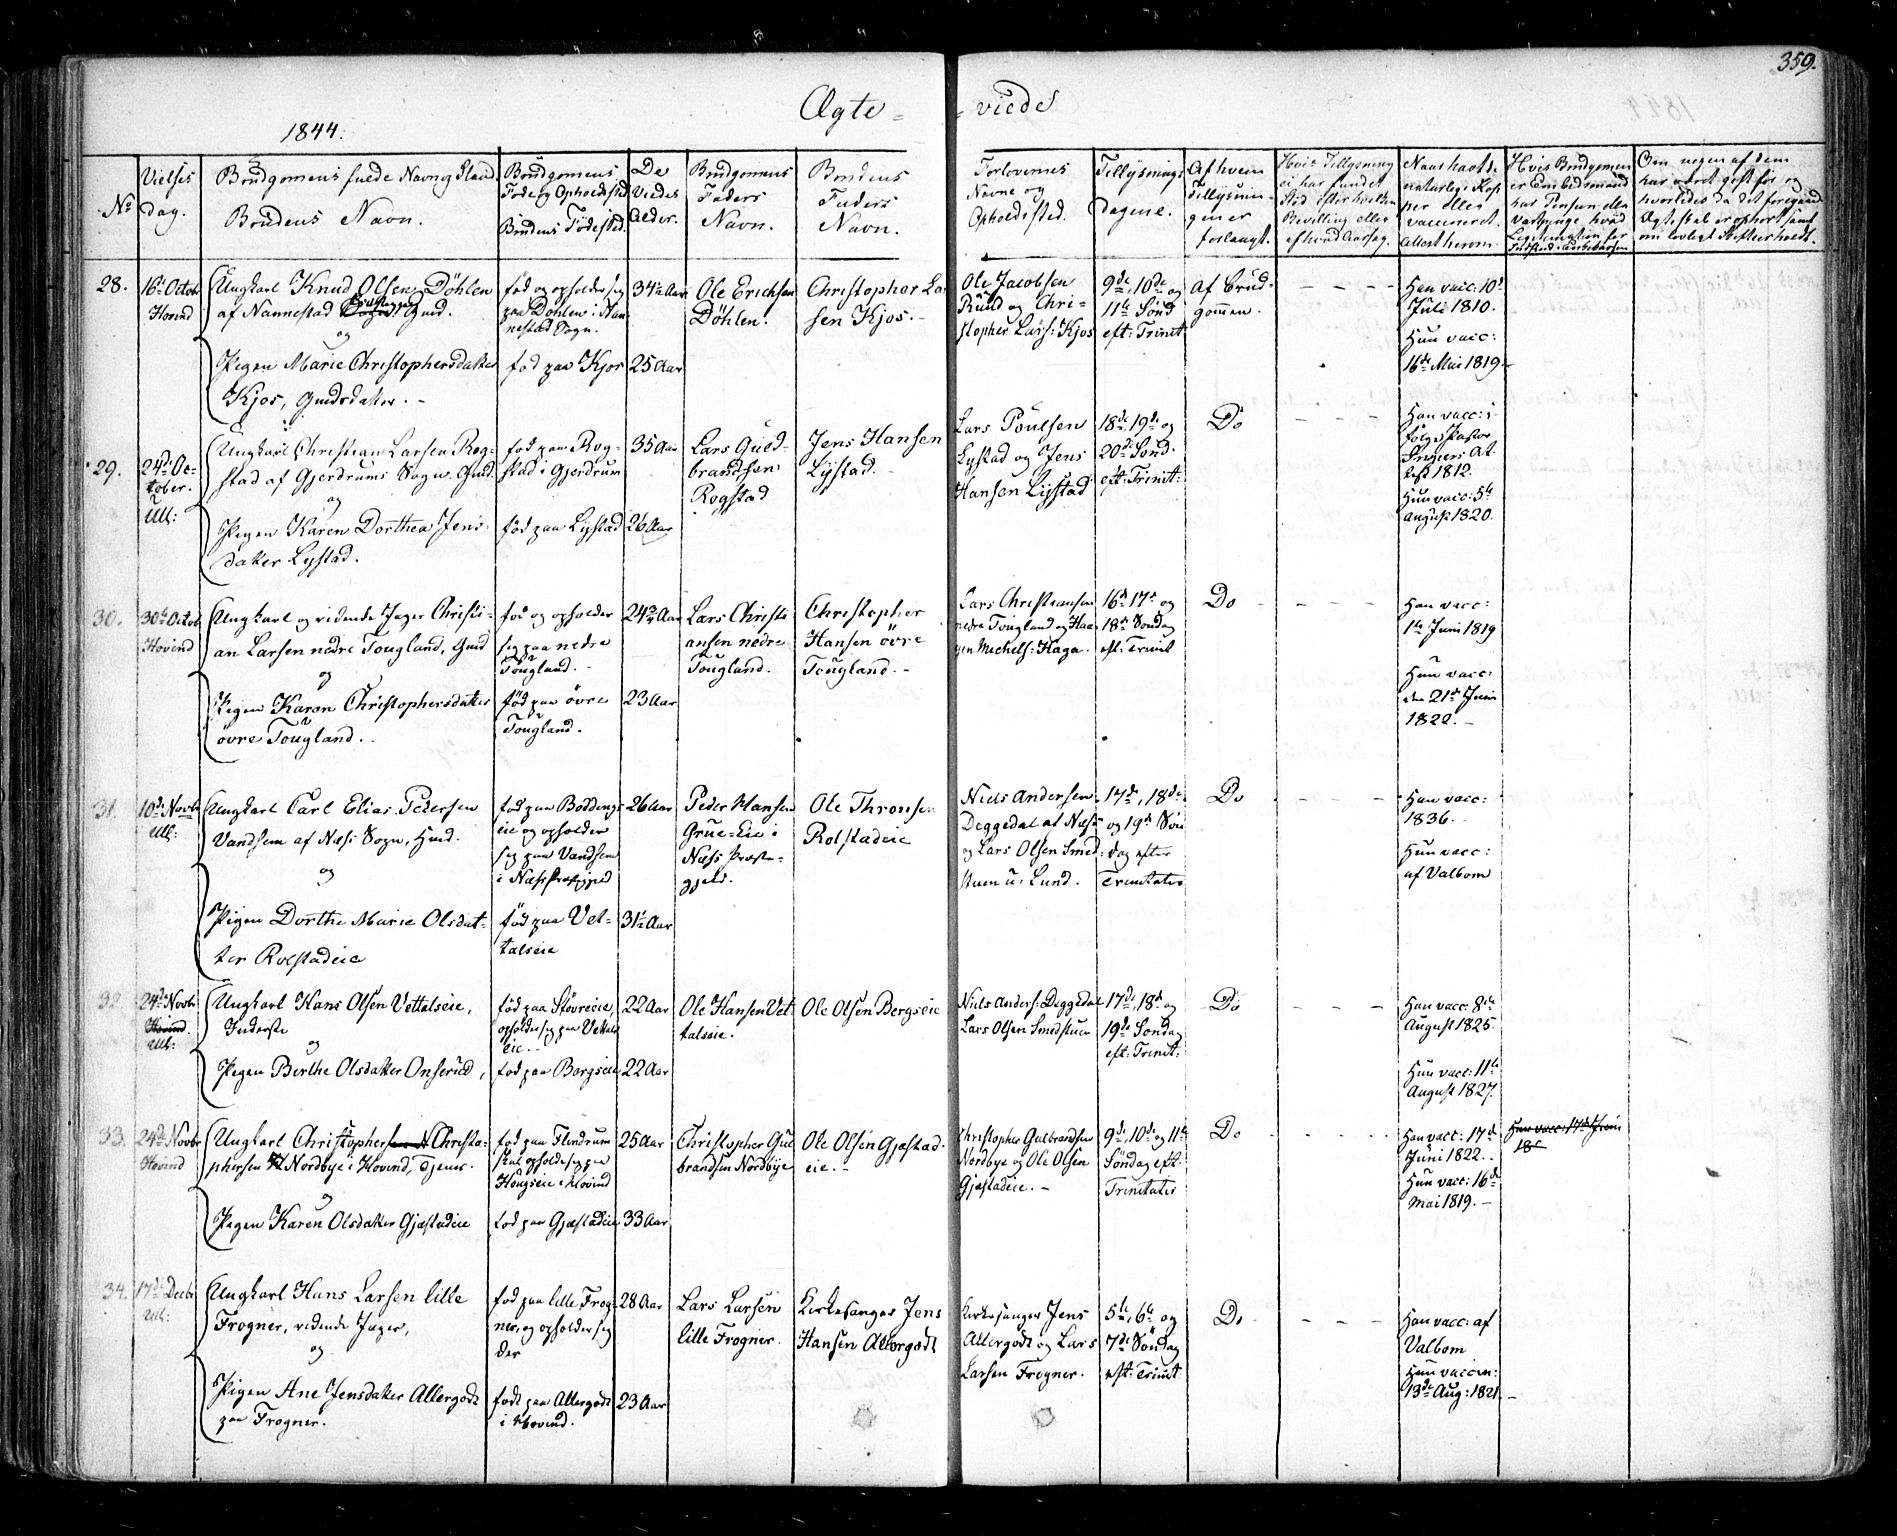 359.
Ægte = = viede
1844.
No
Vielses
dag.
Brudgomens fuede Navn og Stand
Brudens Navn.
Brudgomens
Fode og Opholdssted
Brudens Födested.
De
Viedes
Alder.
Brudgomens
Faders
Navn.
Brudens
Faders
Navn.
Forlovernes
Navne og
Opholdssted.
Tillysnings
dagene.
Af hvem
Tillysnin-
gen er
forlangt.
Hvis Tillysning
ei har fundet
Sted efter hvilken
Bevilling eller
af hvad Aarsag.
Naar havt de
naturlige Kop
per eller
vaccineret.
Attest herom.
Hvis Brudgomen
er Embedsmand
har Pension eller
Om nogen af dem
har været gift før og
hvorledes da det foregaaende
Ægteskab er ophørt samt
om lovligt Skifte er holdt.
28.
16de Octob
Hovind
Ungkarl Knud Olsen Döhlen
af Nannestad Præstegjeld Gmd.
og
Pigen Marie Christophersdatter
Kjos, Gmdsdatter. -
fød og opholder sig
paa Döhlen i Nan
nestad Sogn.
fød paa Kjos
34½ Aar
25 Aar
Ole Erichsen
Döhlen.
Christopher Lar
sen Kjos. -
Ole Jacobsen
Ruud og Chri-
stopher Lars: Kjos
9de, 10de og
11te Sönd
eft: Trinit
Af Brud-
gommen.
Han vacc: 10d
Juli 1810.
Hun vacc:
16de Mai 1819.
29.
24de Oc-
tober.
Ull:
Ungkarl Christian Larsen Rog-
stad af Gjerdrums Sogn. Gmd.
og
Pigen Karen Dorthea Jens-
datter Lystad.
fød paa Rog-
stad i Gjerdrum
fød paa Lystad
35 Aar
26 Aar
Lars Guld-
brandsen
Rogstad
Jens Hansen
Lystad.
Lars Poulsen
Lystad og Jens
Hansen Lystad
18de, 19de og
20de Sönd.
eft: Trinit:
Do
Han vacc: i-
følge Pastor
test 1812.
Hun vacc: 5te
August 1820.
30.
30te Octob
Hovind
Ungkarl og ridende Jæger Christi-
an Larsen nedre Tougland, Gmd
og
Pigen Karen Christophersdatter
övre Tougland. .
fød og opholder
sig paa nedre
Tougland. -
fød paa övre
Tougland.
24¾ Aar
23 Aar
Lars Christi
ansen nedre
Tougland.
Christopher
Hansen övre
Tougland. -
Lars Christiansen
nedre Tougland og Haa
gen Michels: Haga.
16de 17de og
18de Søndag
eft: Trinit
Do
Han vacc:
1te Juni 1819
Hun vacc:
den 21de Juni
1822. -
31.
10de Novb
Ull:
Ungkarl Carl Elias Pedersen
Vandsem af Næs: Sogn, Gmd.
og
Pigen Dorthe Marie Olsdat-
ter Rolstadeie
fød paa Böddings
eie og opholder
sig paa Vandsem
i Næs Præstegjeld
fød paa Vet-
talseie
26 Aar
31½ Aar
Peder Hansen
Grue-Eie i
Næss Præste-
gjeld.
Ole Thronsen
Rolstadeie
Niels Andersen
Deggedal af Næss
og Lars Olsen Smed-
stuen u: Lund.
17de, 18de
og 19de Sön
dag efter
Trinitatis
Do
Han vacc:
1836.
Hun vacc:
af Valbom
32.
24de Novb
Hovind.
Ull:
Ungkarl Hans Olsen Vettalseie,
Inderste
og
Pigen Berthe Olsdatter Onserud,
fød paa Stövreeie,
opholder sig paa Vettals
eie. -
fød paa Bergseie
22 Aar
22 Aar
Ole Hansen Vet
talseie.
Ole Olsen Bergseie
Niels Anders: Deggedal
Lars Olsen Smedstuen
17de, 18de og
19de Søndag
eft: Trinit:
Do
Han vacc: 8de
August 1825
Hun vacc: 11te
August 1827.
33.
24de Novbr
Hovind
Ungkarl Christophersen N Christo-
phersen Nordbye i Hovind, Tjener.
og
Pigen Karen Olsdatter Gjæstadeie
fød paa Flendrum
skal opholde sig paa
Hougseie i Hovind
fød paa Gjæstadeie
25 Aar
33 Aar
Christopher Gul
brandsen Nordbye
Ole Olsen Gjæstad-
eie. -
Christopher Gulbrandsen
Nordbye og Ole Olsen
Gjæstadeie. -
9de, 10de og 11te
Søndag eft:
Trinitatis
Do
Han vacc: 17de
Juni 1822. -
Hun vacc: 16de
Mai 1819. -
Han vacc: 17de Juni
18
34.
17de Decbr
Ull:
Ungkarl Hans Larsen lille
Frogner, ridende Jæger,
og
Pigen Ane Jensdatter Allergodt
paa Frogner.
fød paa lille Frog-
ner, og opholder sig
der
født paa Allergodt
i Hovind.
28 Aar
23 Aar
Lars Larsen
lille Frogner.
Kirkesanger Jens
Hansen Allergodt
Kirkesanger Jens
Allergodt og Lars
Larsen Frogner.
5te, 6te og
7de Søndag
eft: Trinit
Do
Han vacc: af
Valbom
Hun vaccin:
13de Aug: 1821. -